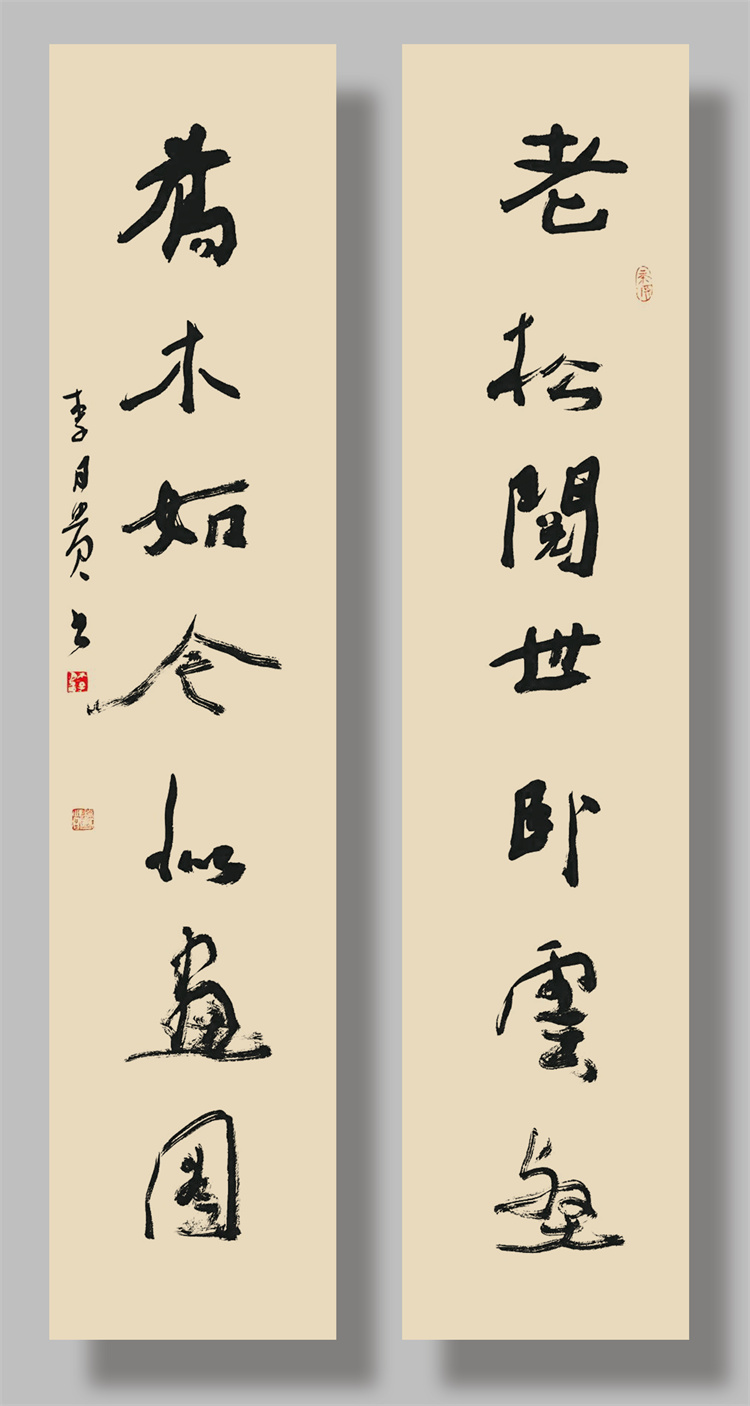 老松閱世卧雲壑
喬木如今似畫圖
李月书